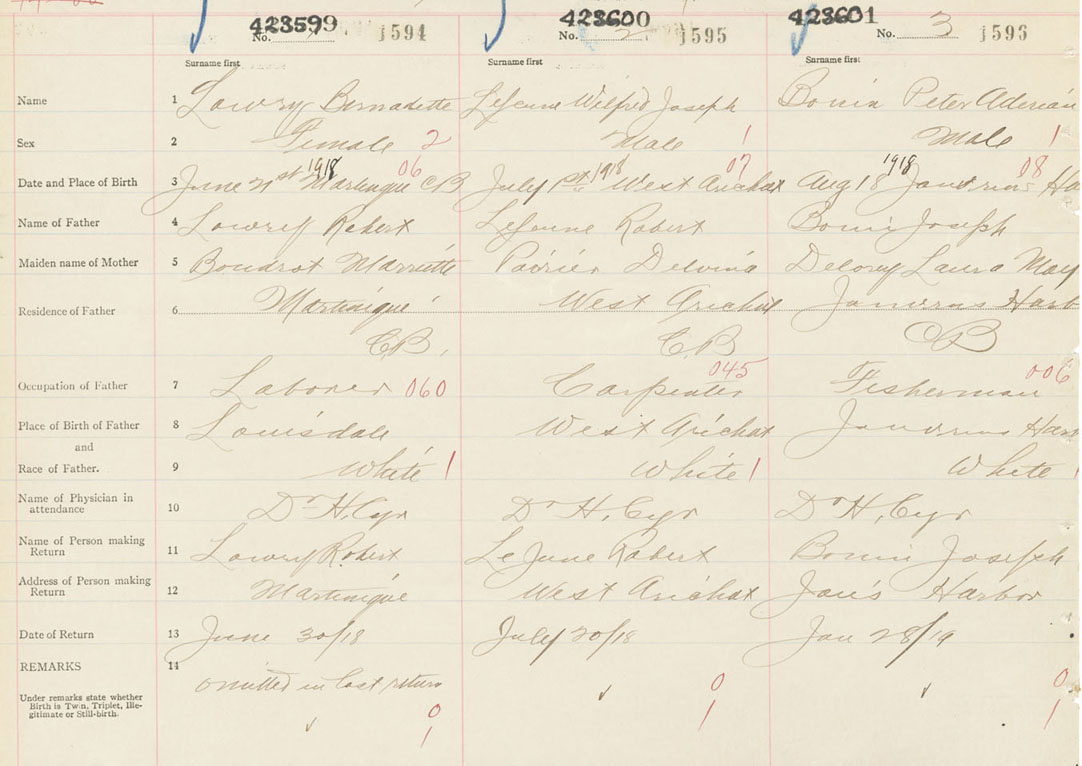 423599 423600 423601
No. 1594 No. 2 1595 No. 3 1596
Surname first Surname first Surname first
Name 1 Lowry Bernadette LeJeune Wilfred Joseph Bonin Peter Adrian
Sex 2 Female 2 Male 1 Male 1
Date and Place of Birth 3 June 21st 1918 Martinique CB 06 July 1st 1918 West Arichat 07 Aug 18 1918 Janvrins Ha 08
Name of Father 4 Lowry Robert LeJeune Robert Bonin Joseph
Maiden name of Mother 5 Boudrot Marriette Poirier Delvina Delorey Laura May
Residence of Father 6 Martinique West Arichat Janvrins Harb
CB, CB CB
Occupation of Father 7 Laborer 060 Carpenter 045 Fisherman 006
Place of Birth of Father 8 Louisdale West Arichat Janvrins Har
and
Race of Father. 9 White 1 White 1 White 1
Name of Physician in
attendance 10 Dr H. Cyr Dr H. Cyr Dr H. Cyr
Name of Person making
Return 11 Lowry Robert LeJune Robert Bonin Joseph
Address of Person making
Return 12 Martinique West Arichat Jan's Harbor
Date of Return 13 June 30/18 July 30/18 Jan 28/19
REMARKS 14 omitted in last return
Under remarks state whether
Birth is Twin, Triplet, Ille-
gitimate or Still-birth.
0 0 0
1 1 1